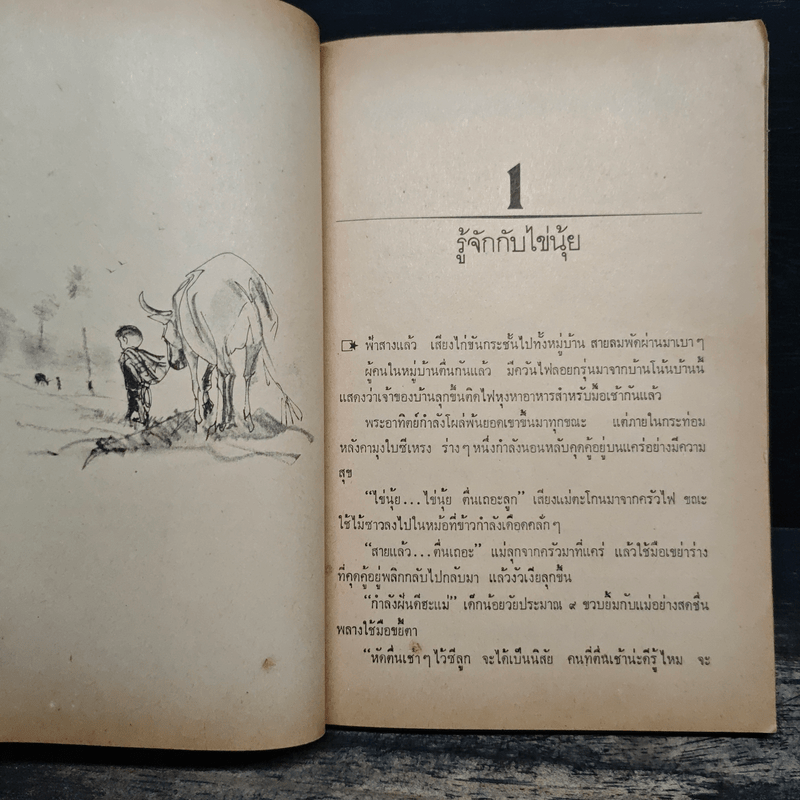 1
รู้จักกับไข่นุ้ย
ฟ้าสางแล้ว เสียงไก่ขันกระชั้นไปทั้งหมู่บ้าน สายลมพัดผ่านมาเบา ๆ
ผู้คนในหมู่บ้านตื่นกันแล้ว มีควันไฟลอยกรุ่นมาจากบ้านโน้นบ้านนี้
แสดงว่าเจ้าของบ้านลุกขึ้นติดไฟหุงหาอาหารสำหรับมื้อเช้ากันแล้ว
พระอาทิตย์กำลังโผล่พ้นยอดเขาขึ้นมาทุกขณะ แต่ภายในกระท่อม
หลังคามุงใบซีเหรง ร่าง ๆ หนึ่งกำลังนอนหลับคุดคู้อยู่บนแคร่อย่างมีความ
สุข
“ไข่นุ้ย...ไข่นุ้ย ตื่นเถอะลูก” เสียงแม่ตะโกนมาจากครัวไฟ ขณะ
ใช้ไม้ซาวลงไปในหม้อที่ข้าวกำลังเดือดคลั่ก ๆ
“สายแล้ว...ตื่นเถอะ” แม่ลุกจากครัวมาที่แคร่ แล้วใช้มือเขย่าร่าง
ที่คุดคู้อยู่พลิกกลับไปกลับมา แล้วงัวเงียลุกขึ้น
“กำลังฝันดีฮะแม่” เด็กน้อยวัยประมาณ ๙ ขวบยิ้มกับแม่อย่างสดชื่น
พลางใช้มือขยี้ตา
“หัดตื่นเช้า ๆ ไว้ซีลูก จะได้เป็นนิสัย คนที่ตื่นเช้าน่ะดีรู้ไหม จะ